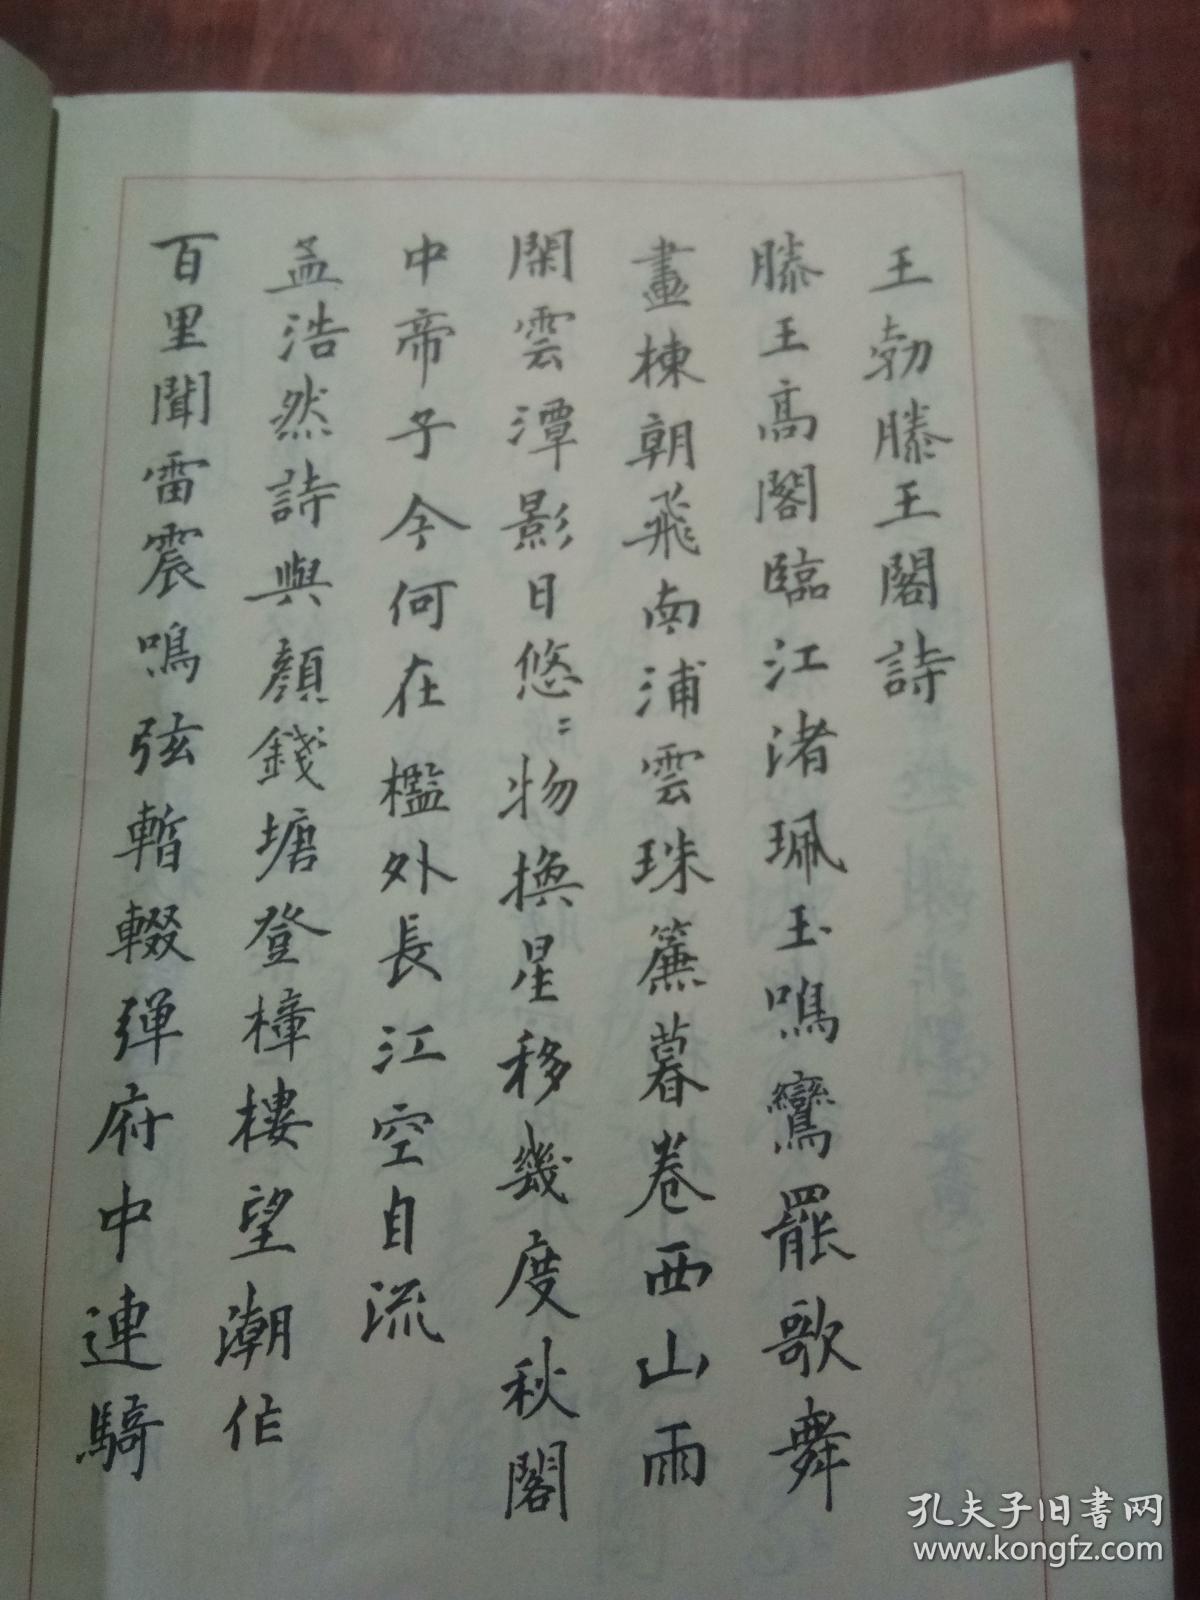 王勃滕王閣詩
滕王高閣臨江渚珮玉鳴鸞罷歌舞
畫棟朝飛南浦雲珠簾暮卷西山雨
閑雲潭影日悠〻物換星移幾度秋閣
中帝子今何在檻外長江空自流
孟浩然詩與顏錢塘登樟樓望潮作
百里聞雷震鳴弦暫輟弹府中連騎
孔夫子旧书网
www.kongfz.com